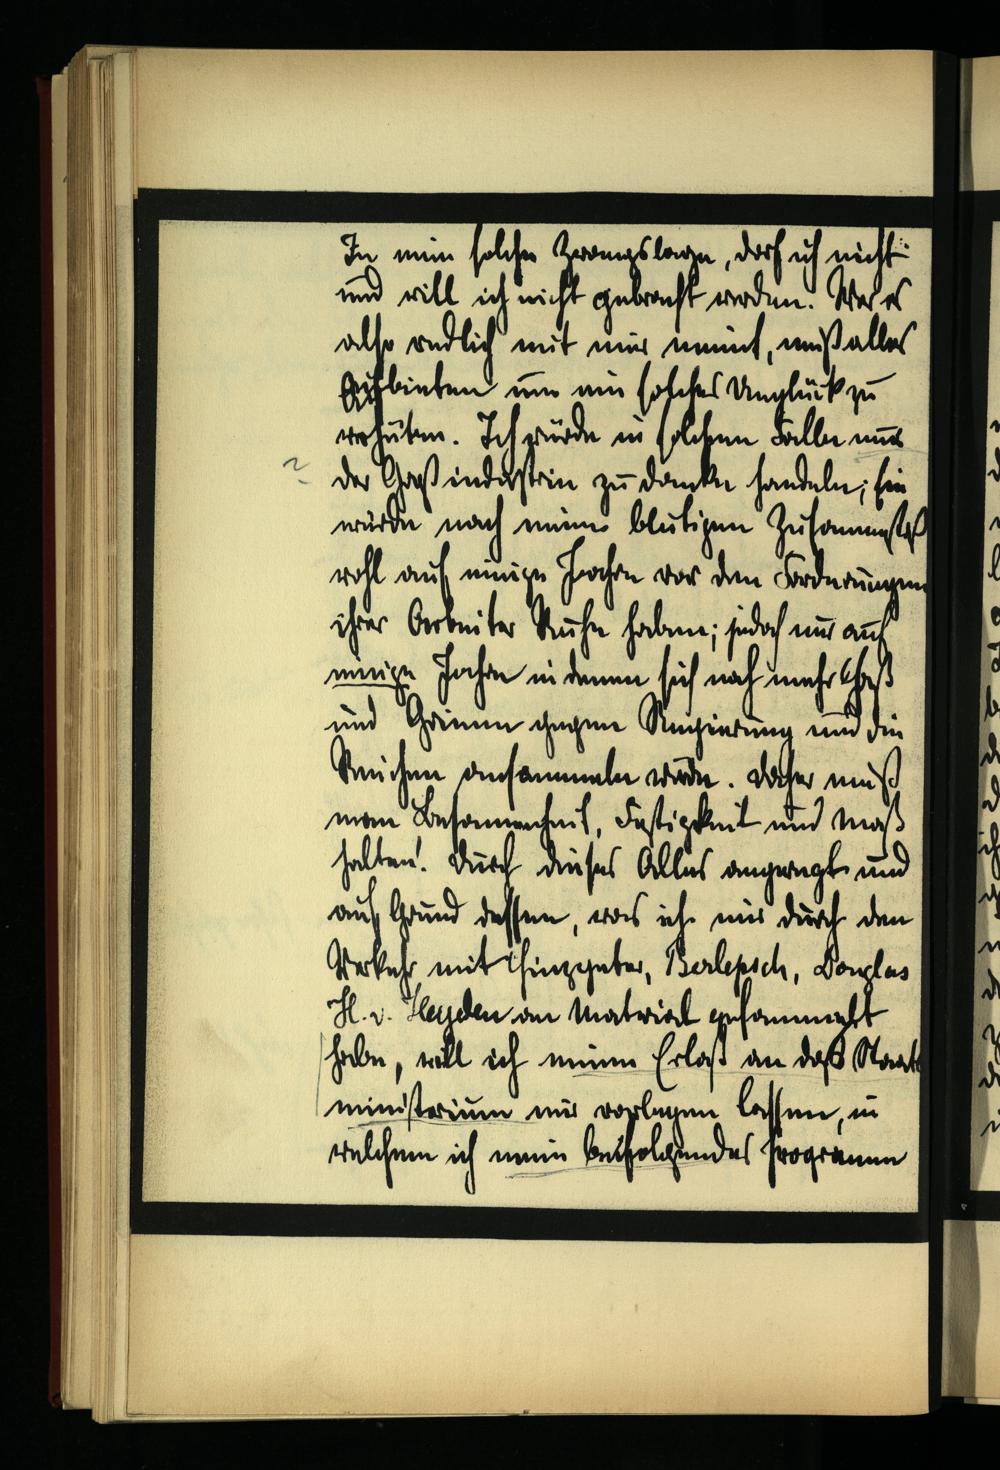 In eine solche Zwangslage, darf ich nicht
und will ich nicht gebracht werden. Wer es
also redlich mit mir meint, muß alles
Aufbieten um ein solches Unglück zu
verhüten. Ich würde in solchem Falle nur
der Großindustrie zu danke handeln; sie
würde nach einem blutigen Zusammenstoß
wohl auf einige Jahre vor den Forderungen
ihrer Arbeiter Ruhe haben; jedoch nur auf
einige Jahre in denen sich noch mehr Haß
und Grimm gegen Regierung und die
Reichen ansammeln würde. Daher muß
man Besonnenheit, Festigkeit und Maß
halten! Durch dieses Alles angeregt und
auf Grund dessen, was ich mir durch den
Verkehr mit Hinzpeter, Berlepsch, Douglas
H. v. Heyden an Material gesammelt
habe, will ich einen Erlaß an daß Staats
ministerium mir vorlegen lassen, in
welchem ich mein beifolgendes Programm